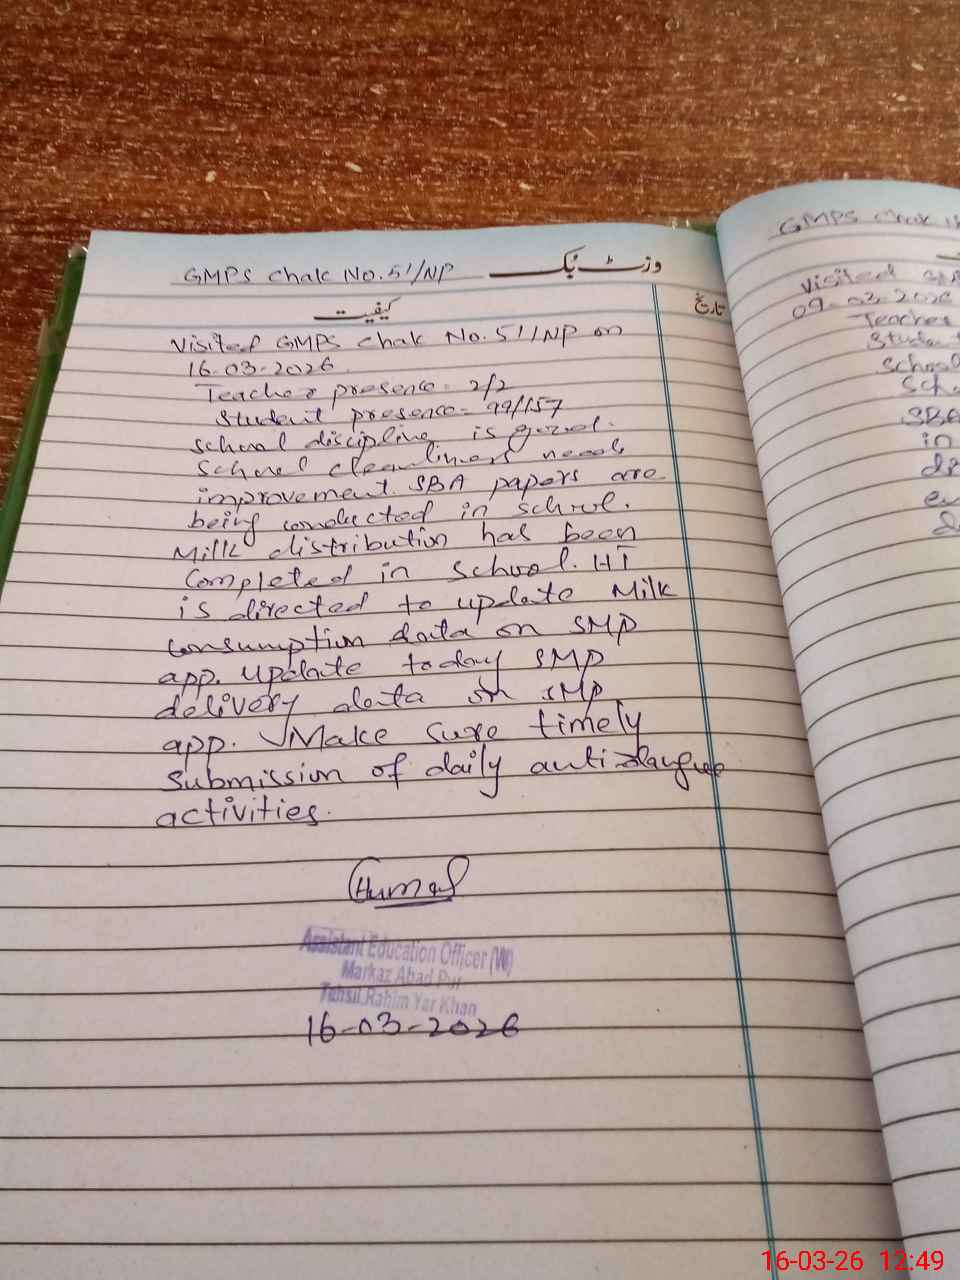 GMPS Chak No. 51/NP وزٹ بک
کیفیت
تاریخ
Visited GMPS Chak No. 51/NP on
16-03-2026
Teacher presence = 2/2
Student presence = 99/157
School discipline is good.
School cleanliness needs
improvement. SBA papers are
being conducted in school.
Milk distribution has been
Completed in school. HT
is directed to update Milk
consumption data on SMP
app. Update today SMP
delivery data on SMP
app. Make sure timely
Submission of daily anti-dangue
activities.
Assistant Education Officer (W)
Markaz Abad Pur
Tehsil Rahim Yar Khan
16-03-2026
GMPS Chak
Visited
09-03-2026
Teacher
School
SBA
in
16-03-26 12:49